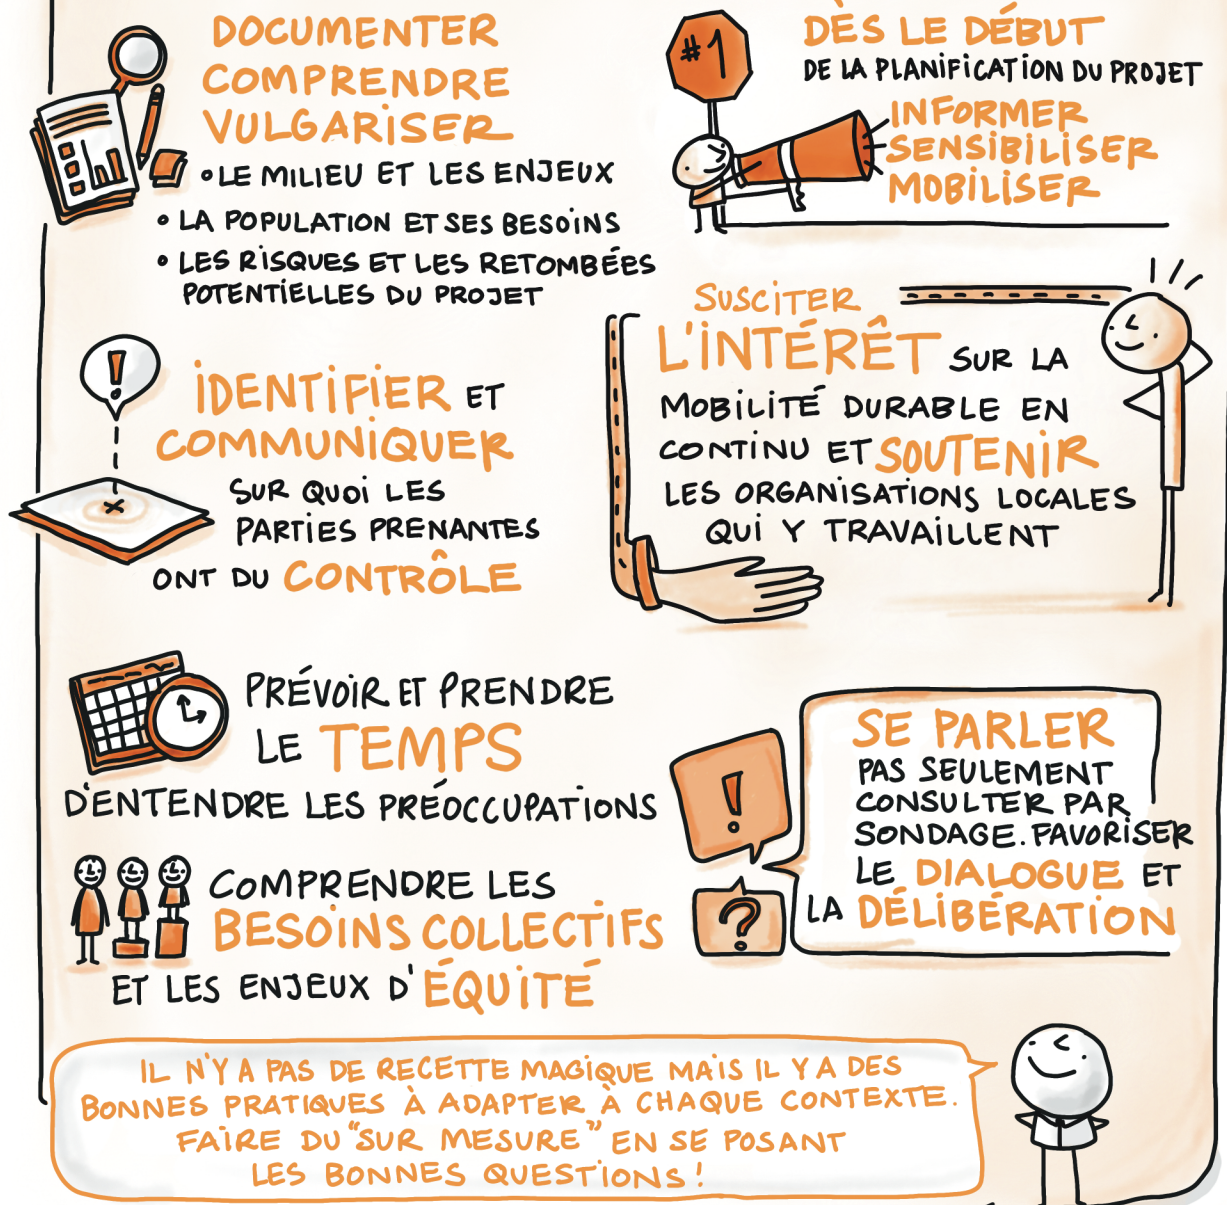 DOCUMENTER
COMPRENDRE
VULGARISER
• LE MILIEU ET LES ENJEUX
• LA POPULATION ET SES BESOINS
• LES RISQUES ET LES RETOMBÉES
POTENTIELLES DU PROJET
#1
DÈS LE DÉBUT
DE LA PLANIFICATION DU PROJET
INFORMER
SENSIBILISER
MOBILISER
!
IDENTIFIER ET
COMMUNIQUER
SUR QUOI LES
PARTIES PRENANTES
ONT DU CONTRÔLE
SUSCITER
L'INTÉRÊT SUR LA
MOBILITÉ DURABLE EN
CONTINU ET SOUTENIR
LES ORGANISATIONS LOCALES
QUI Y TRAVAILLENT
PRÉVOIR ET PRENDRE
LE TEMPS
D'ENTENDRE LES PRÉOCCUPATIONS
COMPRENDRE LES
BESOINS COLLECTIFS
ET LES ENJEUX D'ÉQUITÉ
!
?
SE PARLER
PAS SEULEMENT
CONSULTER PAR
SONDAGE. FAVORISER
LE DIALOGUE ET
LA DÉLIBÉRATION
IL N'Y A PAS DE RECETTE MAGIQUE MAIS IL Y A DES
BONNES PRATIQUES À ADAPTER À CHAQUE CONTEXTE.
FAIRE DU "SUR MESURE" EN SE POSANT
LES BONNES QUESTIONS !